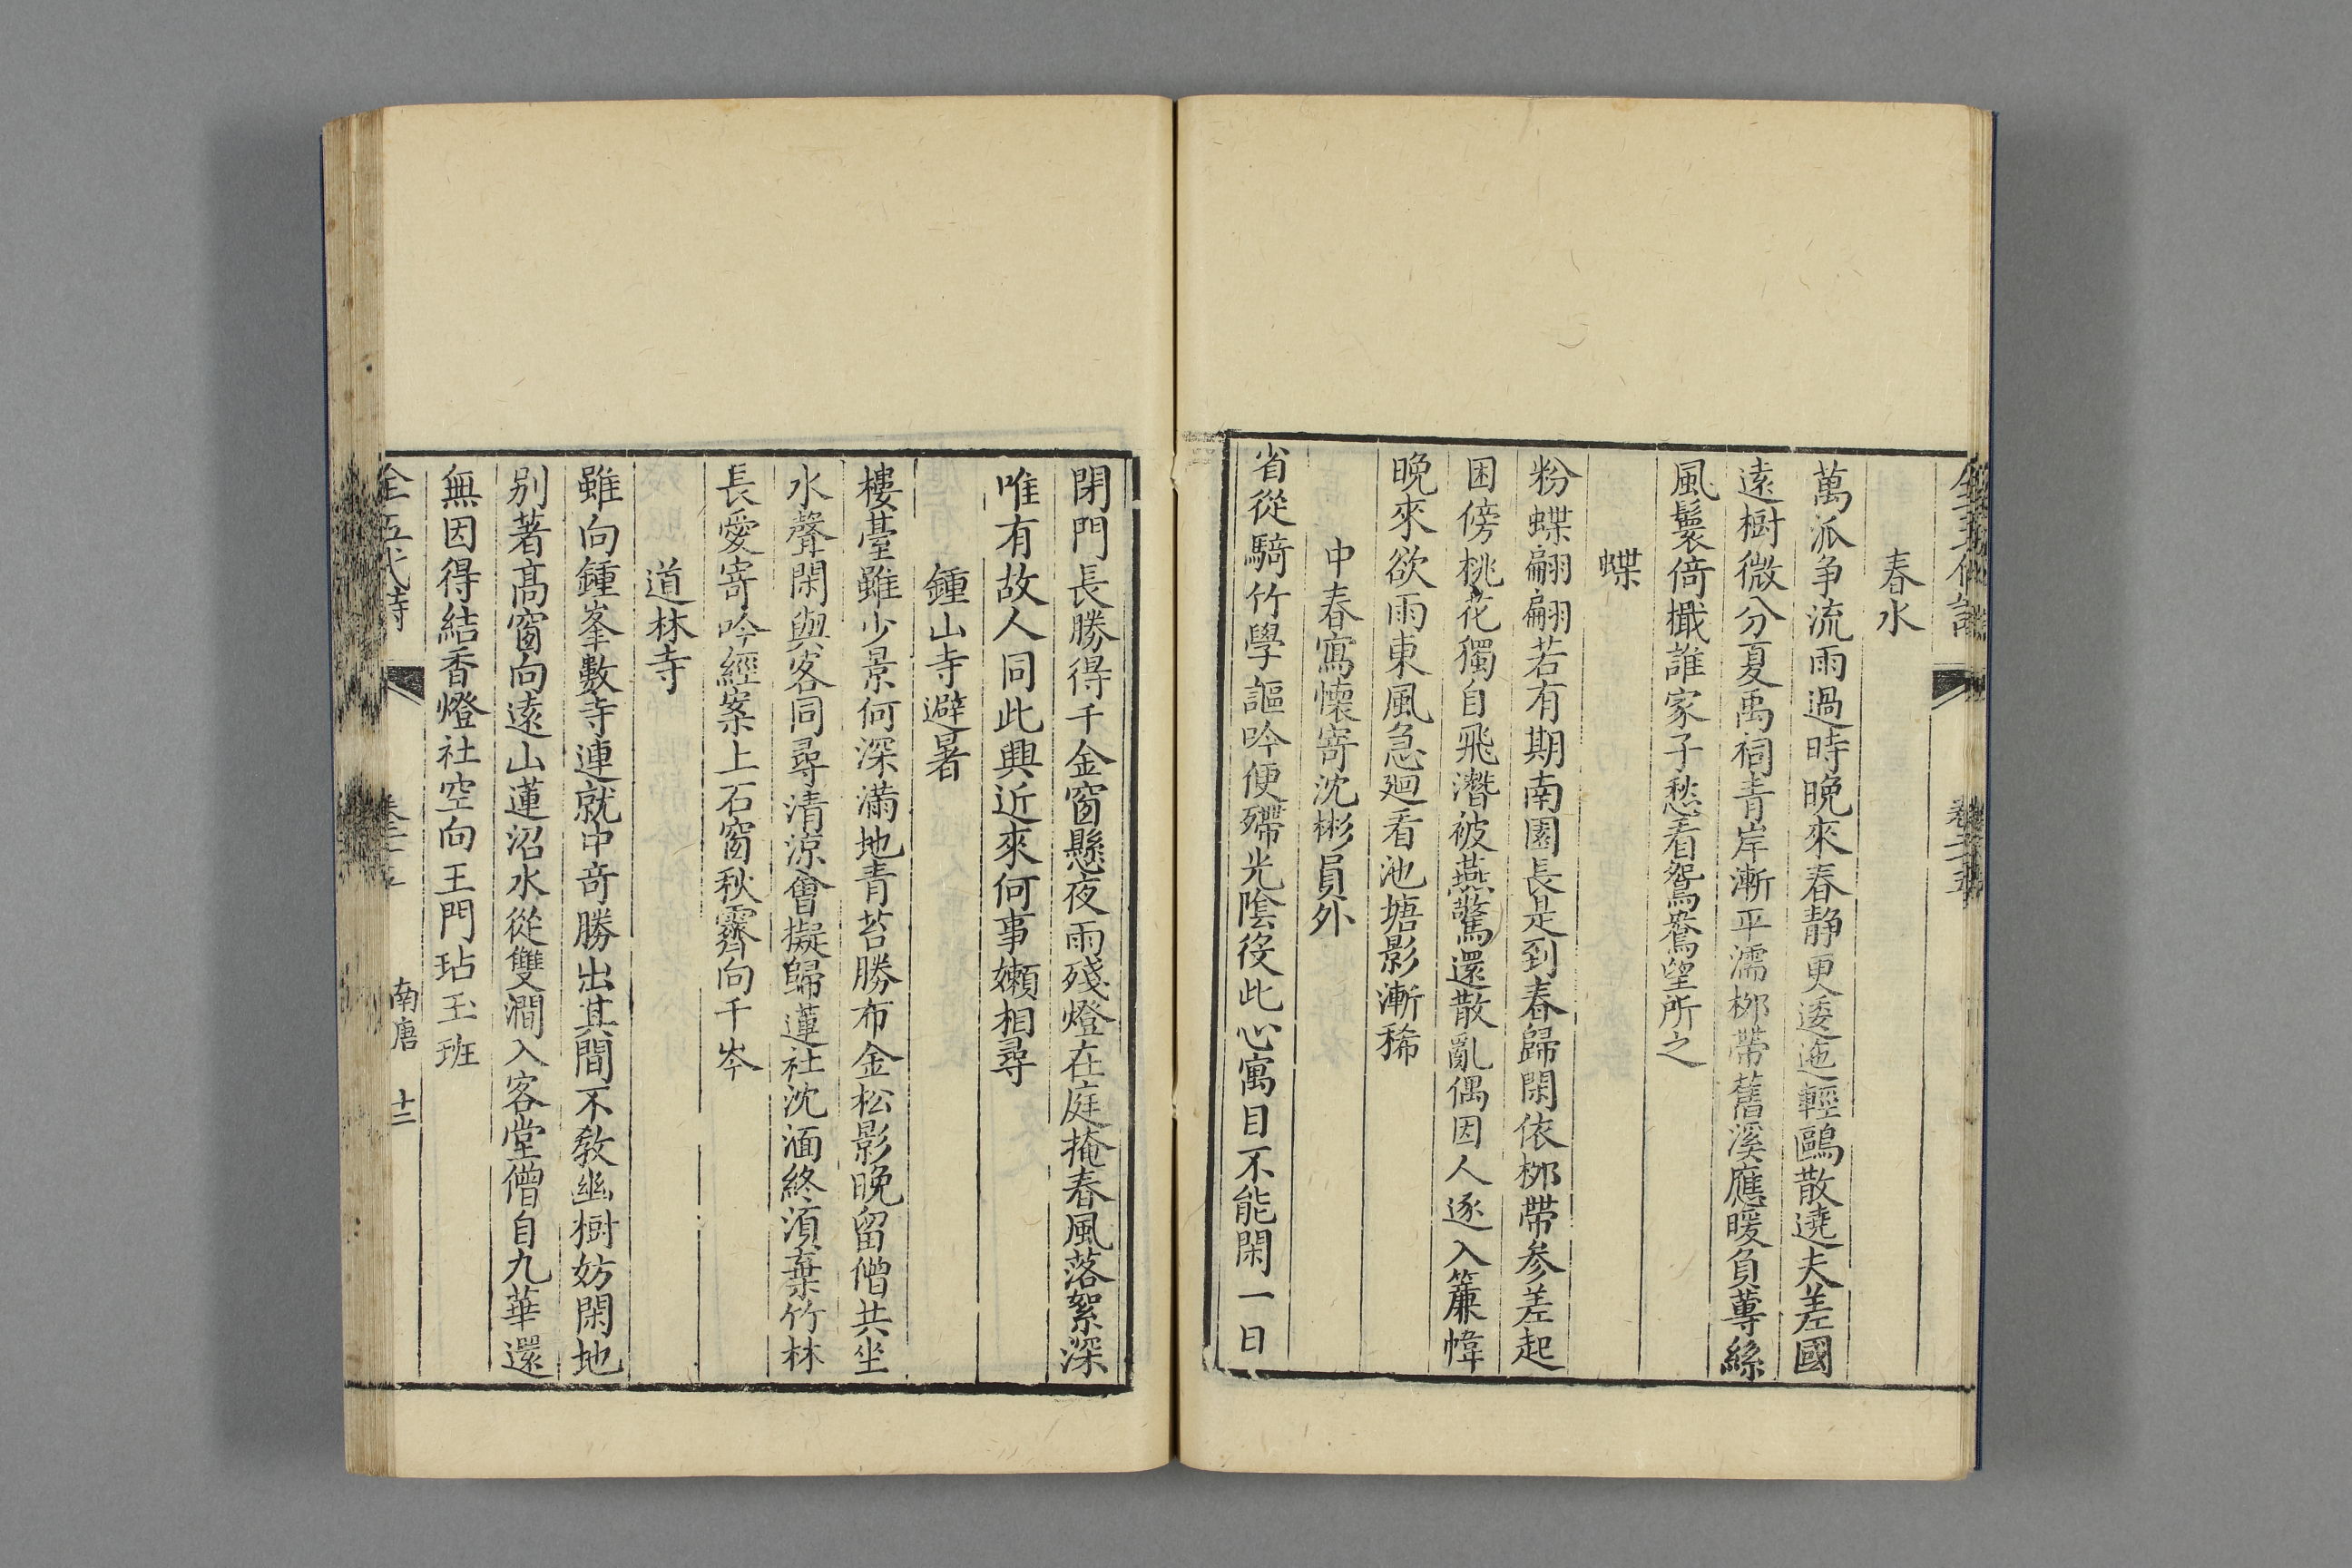 春水
萬派争流雨過時晚來春静更逶迤輕鷗散遶夫差國
遠樹微分夏禹祠青岸漸平濡桞帶舊溪應暖負蓴絲
風鬟倚檝誰家子愁看鴛鴦望所之
蝶
粉蝶翩翩若有期南園長是到春歸閑依桞帶参差起
困傍桃花獨自飛潛被燕驚還散亂偶因人逐入簾幃
晚來欲雨東風急廻看池塘影漸稀
中春寓懷寄沈彬員外
省從騎竹學謳吟便殢光陰役此心寓目不能閑一日
閉門長勝得千金窗懸夜雨殘燈在庭掩春風落絮深
唯有故人同此興近來何事嬾相尋
鍾山寺避暑
樓臺雖少景何深滿地青苔勝布金松影晚留僧共坐
水聲閑與客同尋清凉會擬歸蓮社沈湎終湏棄竹林
長愛寄吟經案上石窗秋霽向千岑
道林寺
雖向鍾峯數寺連就中竒勝出其間不教幽樹妨閑地
别著髙窗向遠山蓮沼水從雙澗入客堂僧自九華還
無因得結香燈社空向王門玷玉班
全五代詩
南唐
十二